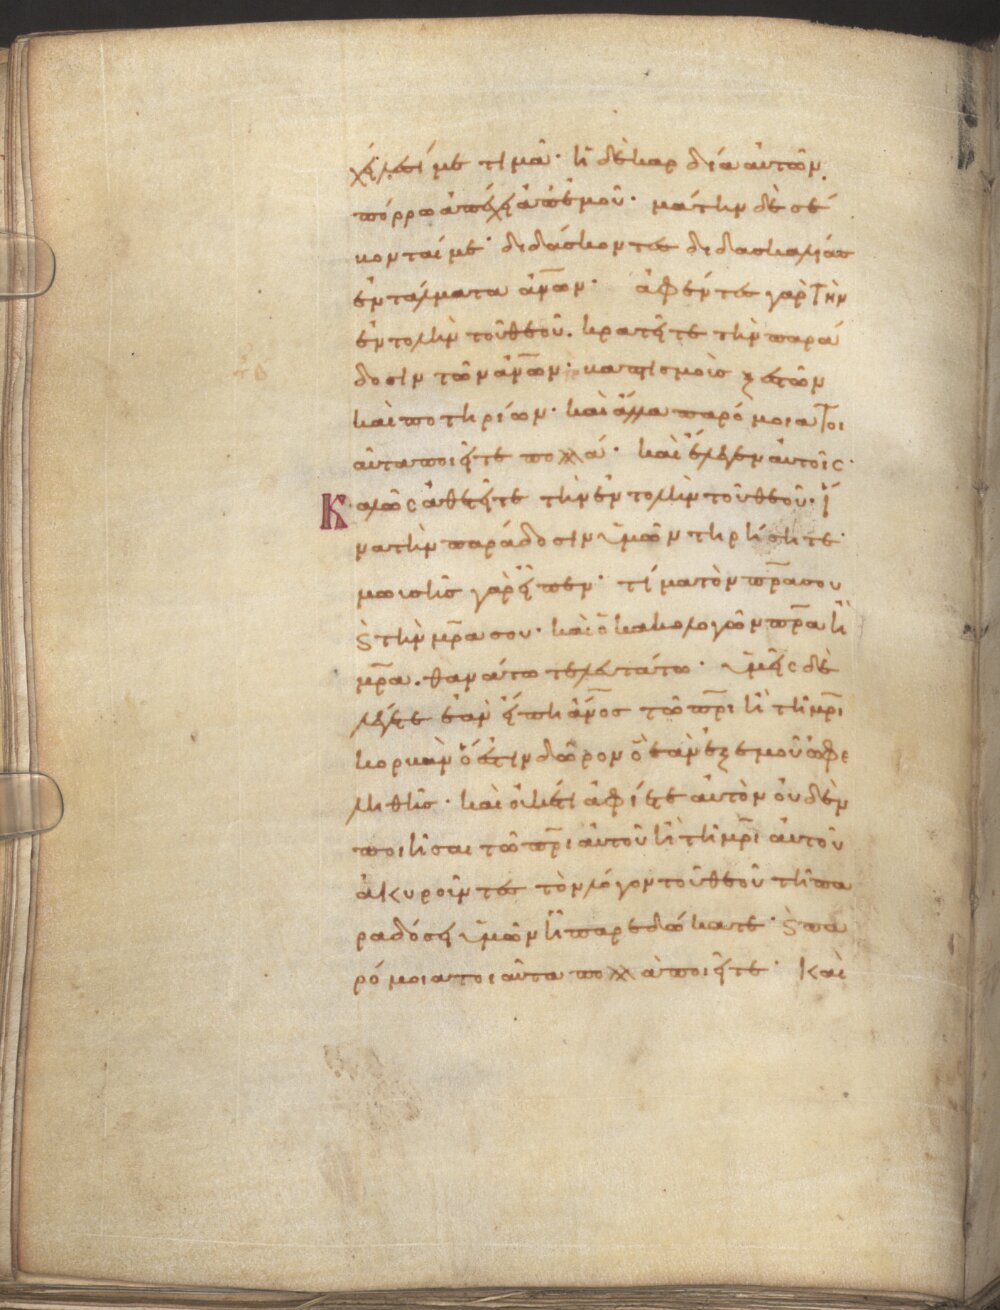 χείλεσί με τιμᾶ· ἡ δὲ καρδία αὐτῶν
πόρρω ἀπέχει ἀπ' ἐμοῦ· μάτην δὲ σέ
βονταί με· διδάσκοντες διδασκαλίας
ἐντάλματα ἀν̅ων· ἀφέντες γὰρ τὴν
ἐντολὴν τοῦ θεοῦ. κρατεῖτε τὴν παρά
δοσιν τῶν ἀν̅ων· βαπτισμοὺς ξεστῶν
καὶ ποτηρίων· καὶ ἄλλα παρόμοια τοι
αῦτα ποιεῖτε πολλά· καὶ ἔλεγεν αὐτοῖς·
Καλῶς ἀθετεῖτε τὴν ἐντολὴν τοῦ θεοῦ· ἵ
να τὴν παράδοσιν ὑμῶν τηρήσητε·
μωυσῆς γὰρ εἶπεν· τίμα τὸν π̅ρα σου
ϗ τὴν μ̅ρα σου· καὶ ὁ κακολογῶν π̅ρα ἢ
μ̅ρα. θανάτω τελευτάτω· ὑμεῖς δὲ
λέγετε ἐὰν εἴπη ἄν̅ος τῶ π̅ρι ἢ τῆ μ̅ρι
κορβὰν ὅ ἐστιν δῶρον ὃ ἐὰν ἐξ ἐμοῦ ὠφε
ληθῆς· καὶ οὐκέτι ἀφίετε αὐτὸν οὐδὲν
ποιῆσαι τῶ π̅ρι αὐτοῦ ἢ τῆ μ̅ρι αὐτοῦ
ἀκυροῦντες τὸν λόγον τοῦ θεοῦ τῆ πα
ραδόσει ὑμῶν ἧ παρεδώκατε· ϗ πα
ρόμοια τοιαῦτα πολλὰ ποιεῖτε· Καὶ